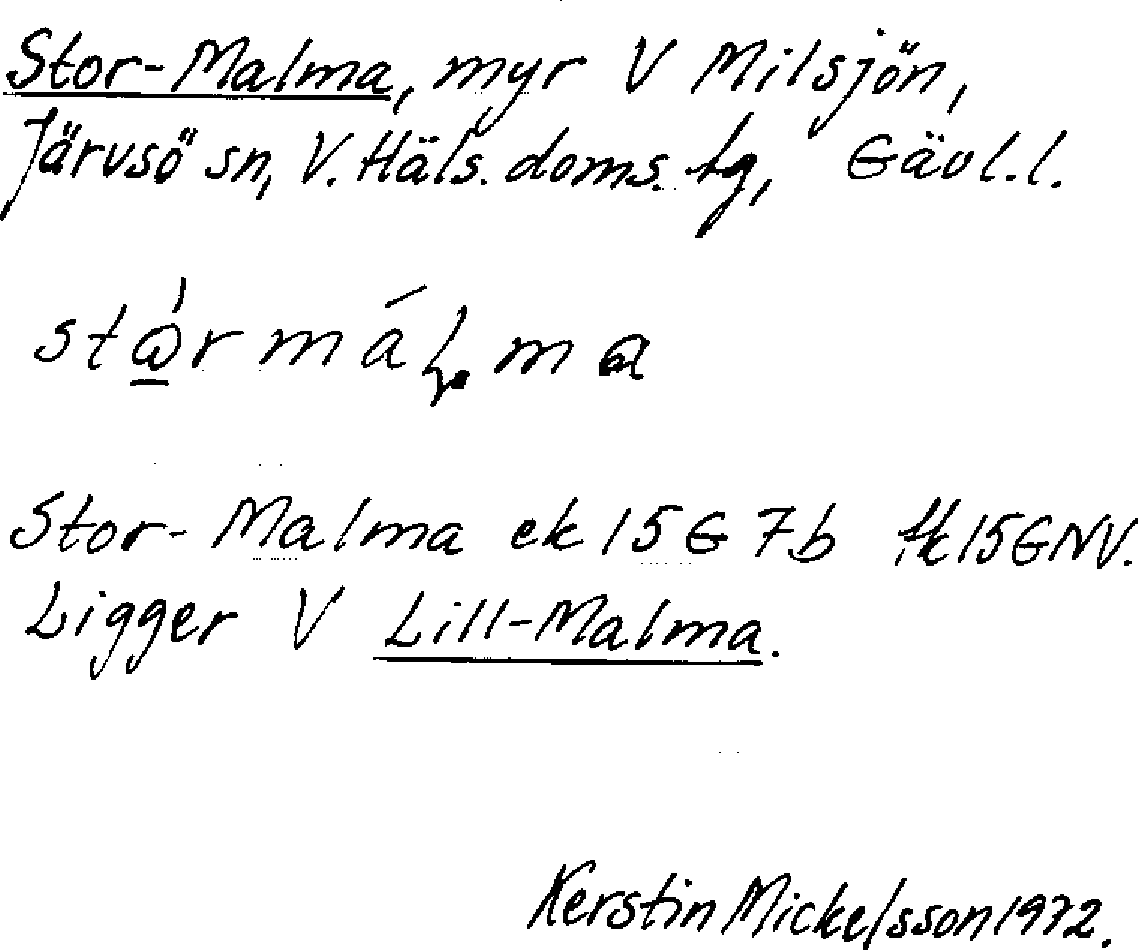 Stor-Malma, myr V Milsjön,
Järvsö sn, V. Häls. doms. tg, Gävl.l.
Stor-Malma ek 15G 7b tk 15GNV.
Ligger V Lill-Malma.
Kerstin Mickelsson 1972.